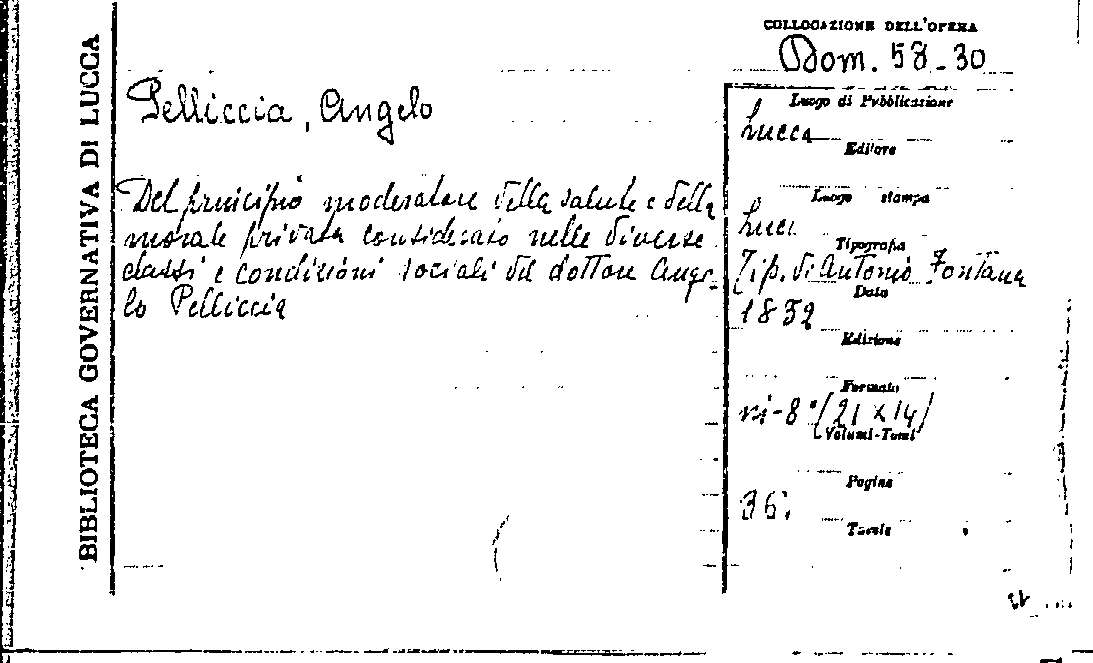 BIBLIOTECA GOVERNATIVA DI LUCCA
COLLOCAZIONE DELL'OPERA
Dom. 58-30
Pelliccia, Angelo
Del principio moderatore della salute e della
morale privata considerato nelle diverse
classi e condizioni sociali del dottore Ange-
lo Pelliccia
Luogo di Pubblicazione
Lucca
Editore
Luogo stampa
Lucca
Tipografia
Tip. di Antonio Fontana
Data
1832
Edizione
Formato
in-8° (21 x 14)
Volumi-Tomi
Pagine
36.
Tavole